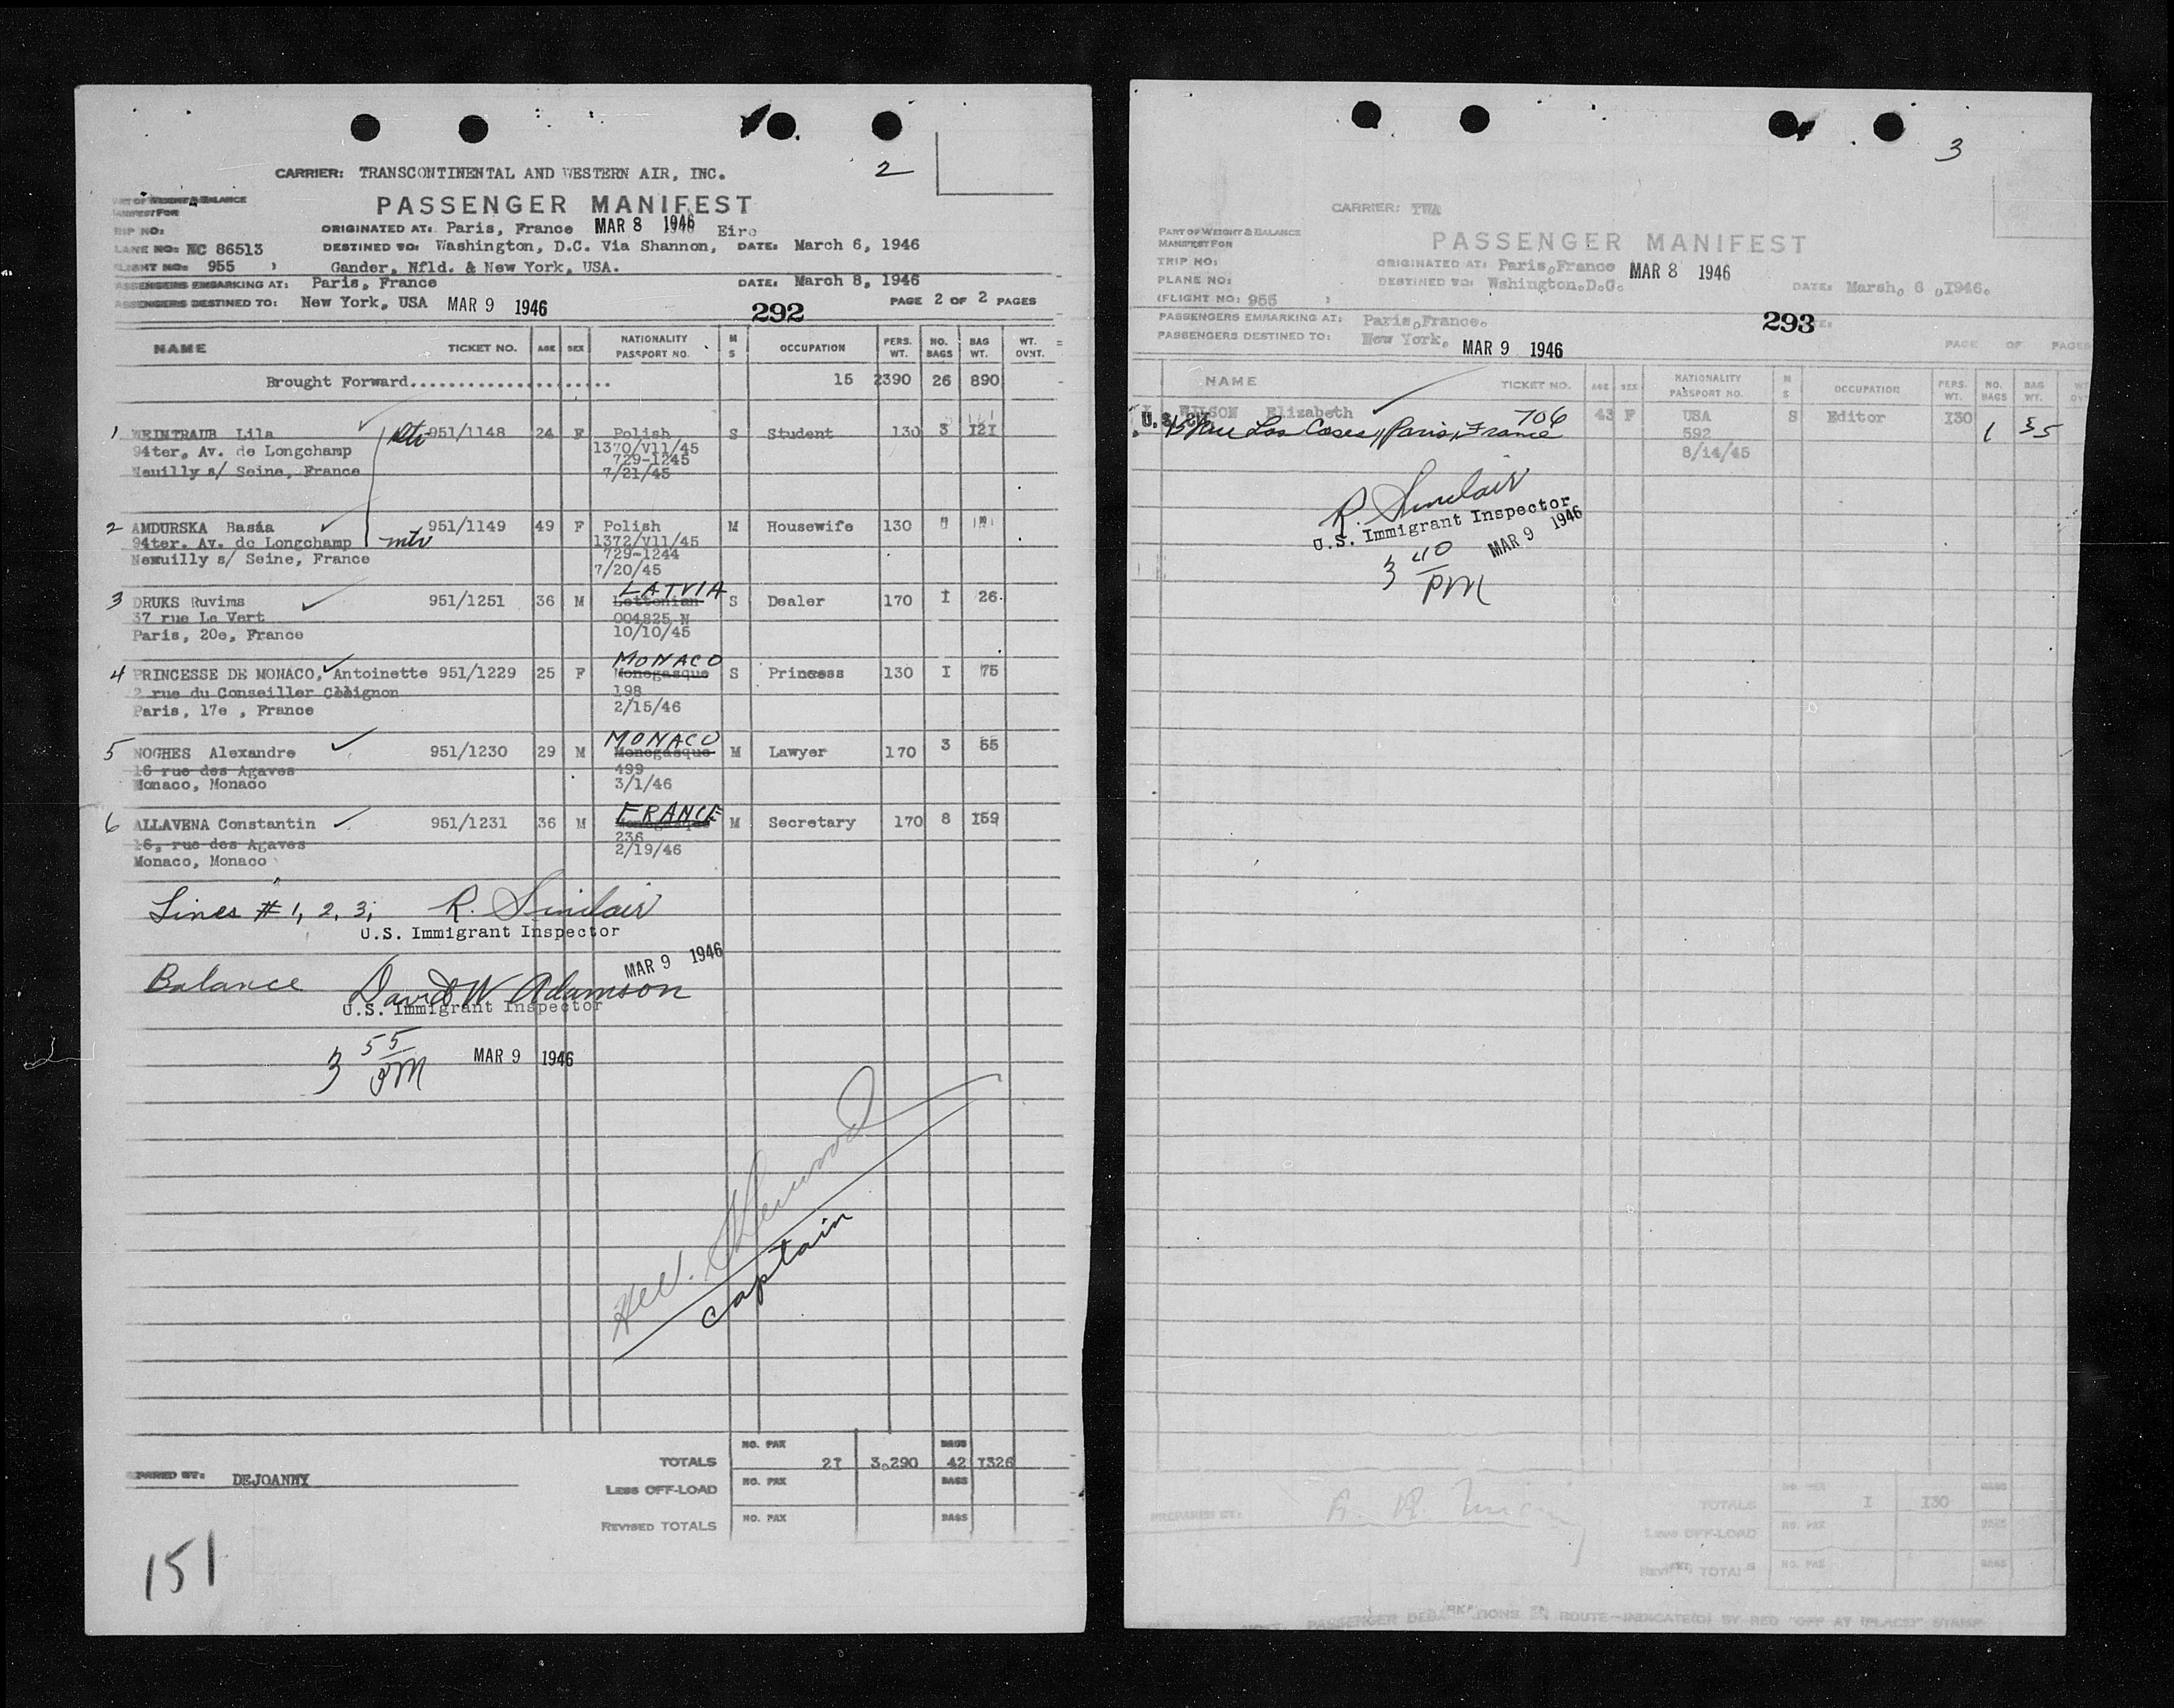 2
CARRIER: TRANSCONTINENTAL AND WESTERN AIR, INC.
PART OF WEIGHT & BALANCE
MANIFEST FOR
PASSENGER MANIFEST
RIP NO:
ORIGINATED AT: Paris, France MAR 8 1946 Eire
LANE NO: NC 86513
DESTINED TO: Washington, D.C. Via Shannon, DATE: March 6, 1946
LIGHT NO: 955 )
Gander, Nfld. & New York, USA.
ASSENGERS EMBARKING AT: Paris, France DATE: March 8, 1946
ASSENGERS DESTINED TO: New York, USA MAR 9 1946 292 PAGE 2 OF 2 PAGES
NAME TICKET NO. AGE SEX NATIONALITY PASSPORT NO. M S OCCUPATION PERS. WT. NO. BAGS BAG WT. WT. OVNT.
Brought Forward...................... 15 2390 26 890
1 WEINTRAUB Lila 951/1148 24 F Polish S Student 130 3 121
94ter, Av. de Longchamp 1370/V11/45
729-1245
Neuilly s/ Seine, France 7/21/45
2 AMDURSKA Basáa 951/1149 49 F Polish M Housewife 130
94ter. Av. de Longchamp mtv 1372/V11/45
Neuilly s/ Seine, France 729-1244
7/20/45
LATVIA
3 DRUKS Ruvims 951/1251 36 M Lettonian S Dealer 170 I 26
37 rue Le Vert 004825 N
Paris, 20e, France 10/10/45
MONACO
4 PRINCESSE DE MONACO, Antoinette 951/1229 25 F Monegasque S Princess 130 I 75
2 rue du Conseiller Collignon 198
Paris, 17e , France 2/15/46
MONACO
5 NOGHES Alexandre 951/1230 29 M Monegasque M Lawyer 170 3 55
16 rue des Agaves 499
Monaco, Monaco 3/1/46
FRANCE
6 ALLAVENA Constantin 951/1231 36 M Monegasque M Secretary 170 8 159
16, rue des Agaves 236
Monaco, Monaco 2/19/46
Lines # 1, 2, 3; R. Sinclair
U.S. Immigrant Inspector
MAR 9 1946
Balance David W Adamson
U.S. Immigrant Inspector
3 55 PM MAR 9 1946
Captain
NO. PAX BAGS
TOTALS 21 3.290 42 1326
PARED BY: DEJOANNY
LESS OFF-LOAD NO. PAX BAGS
REVISED TOTALS NO. PAX BAGS
151
3
CARRIER: TWA
PART OF WEIGHT & BALANCE
MANIFEST FOR
PASSENGER MANIFEST
TRIP NO:
ORIGINATED AT: Paris,France MAR 8 1946
PLANE NO:
DESTINED TO: Wshington.D.C. DATE: Marsh, 6 ,1946.
(FLIGHT NO: 955 )
PASSENGERS EMBARKING AT: Paris,France. 293
PASSENGERS DESTINED TO: New York. MAR 9 1946 PAGE OF PAGES
NAME TICKET NO. AGE SEX NATIONALITY PASSPORT NO. M S OCCUPATION PERS. WT. NO. BAGS BAG WT.
WILSON Elizabeth 706 43 F USA S Editor I30 1 35
Rue Las Cases, Paris, France 592
8/14/45
R. Sinclair
U.S. Immigrant Inspector
MAR 9 1946
3 40 PM
TOTALS NO. PAX I I30 BAGS
PREPARED BY:
LESS OFF-LOAD NO. PAX BAGS
REVISED TOTALS NO. PAX BAGS
NOTE: PASSENGER DEBARKATIONS EN ROUTE-INDICATE(D) BY RED "OFF AT (PLACE)" STAMP